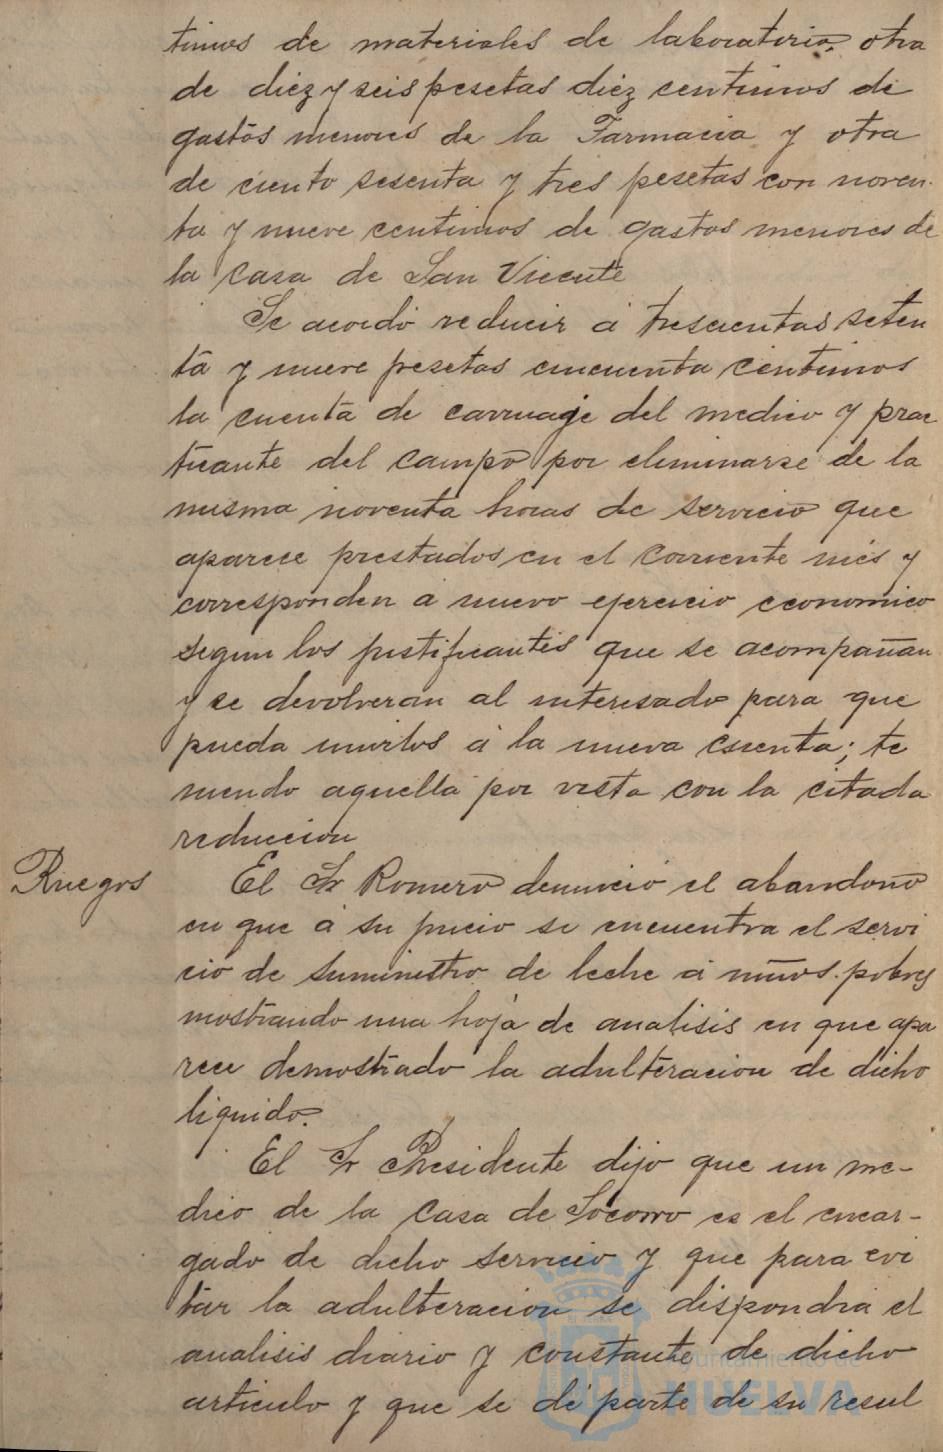 timos de materiales de laboratorio, otra
de diez y seis pesetas diez centimos de
gastos menores de la Farmacia y otra
de ciento sesenta y tres pesetas con noven-
ta y nueve centimos de gastos menores de
la casa de San Vicente
Se acordó reducir á trescientas seten
ta y nueve pesetas cincuenta centimos
la cuenta de carruaje del medico y prac
ticante del campo por eliminarse de la
misma noventa horas de servicio que
aparece prestados en el corriente mes y
corresponden a nuevo ejercicio economico
segun los justificantes que se acompañan
y se devolveran al interesado para que
pueda unirlos á la nueva cuenta; te
niendo aquella por vista con la citada
reduccion
Ruegos
El Sr Romero denunció el abandono
en que á su juicio se encuentra el servi
cio de suministro de leche á niños pobres
mostrando una hoja de analisis en que apa
rece demostrado la adulteracion de dicho
liquido.
El Sr Presidente dijo que un me-
dico de la casa de Socorro es el encar-
gado de dicho servicio y que para evi
tar la adulteracion se dispondrá el
analisis diario y constante de dicho
articulo y que se dé parte de su resul
Ayuntamiento de
HUELVA